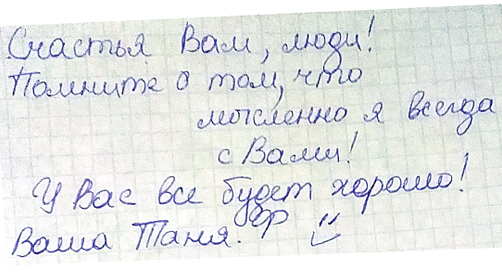 Счастья Вам, люди!
Помните о том, что
мысленно я всегда
с Вами!
У Вас все будет хорошо!
Ваша Таня.